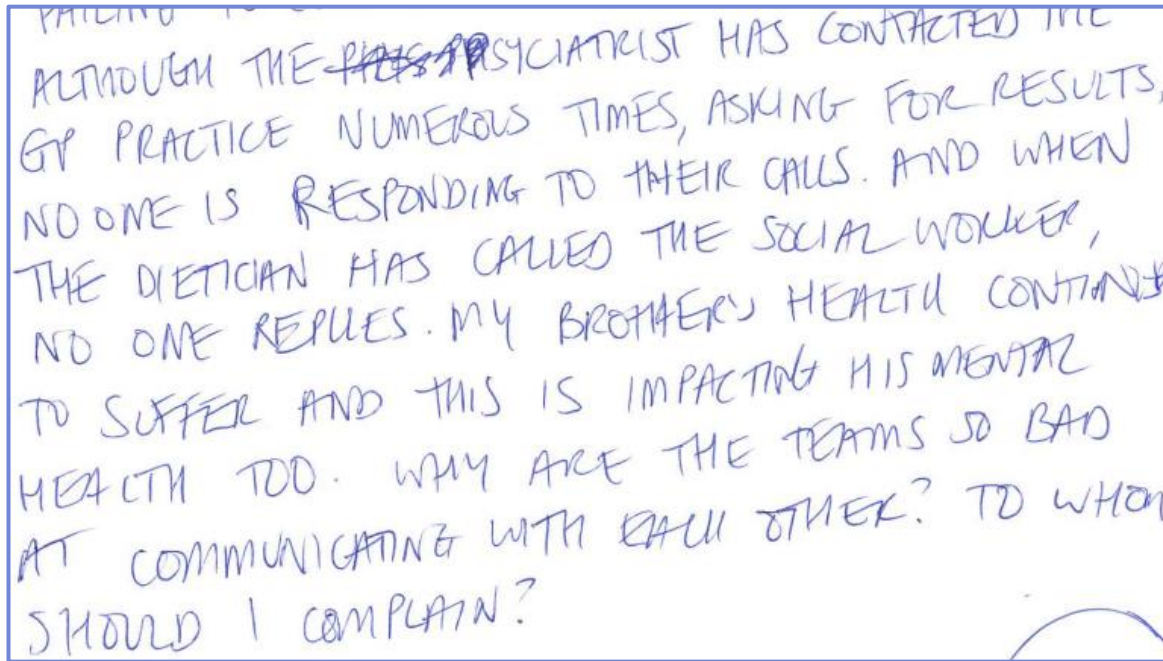 FAILING TO
ALTHOUGH THE PSYCIATRIST HAS CONTACTED THE
GP PRACTICE NUMEROUS TIMES, ASKING FOR RESULTS,
NO ONE IS RESPONDING TO THEIR CALLS. AND WHEN
THE DIETICIAN HAS CALLED THE SOCIAL WORKER,
NO ONE REPLIES. MY BROTHER'S HEALTH CONTINUES
TO SUFFER AND THIS IS IMPACTING HIS MENTAL
HEALTH TOO. WHY ARE THE TEAMS SO BAD
AT COMMUNICATING WITH EACH OTHER? TO WHOM
SHOULD I COMPLAIN?